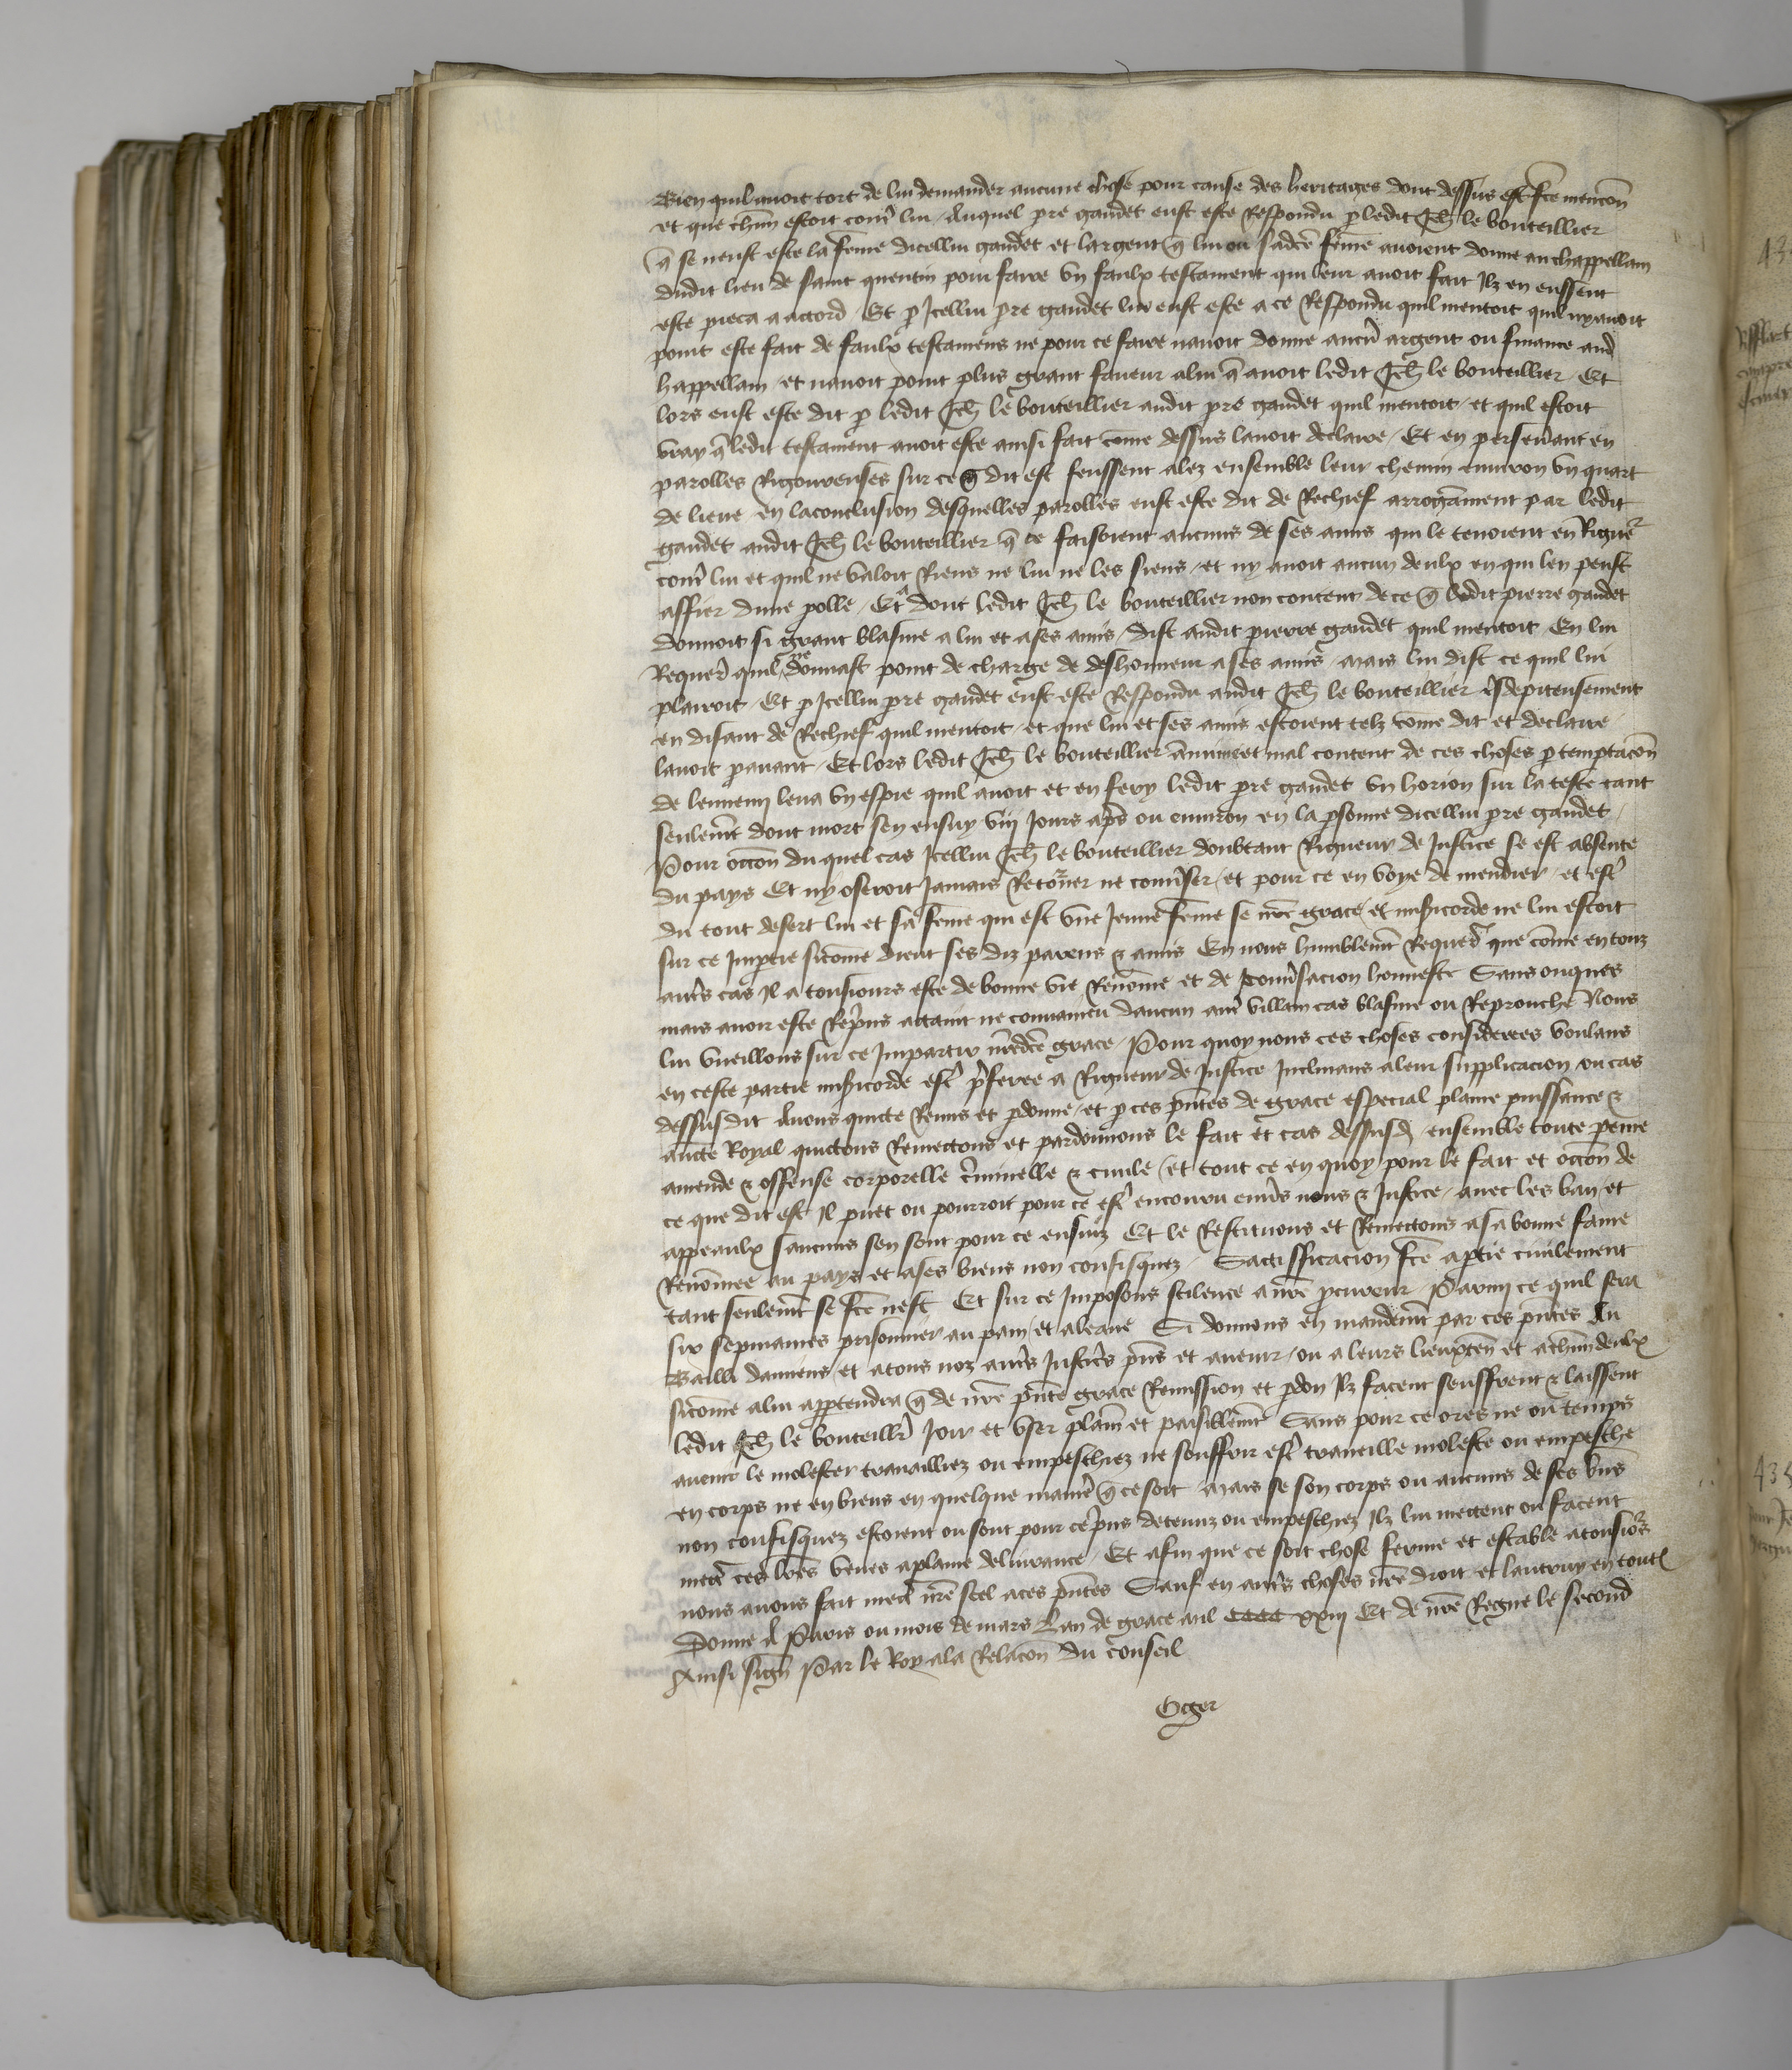 Bien quil avoit tort de lui demander aucune chose pour cause des heritages dont dessus est fcē mencōn
et que chūn estoit contr̄ lui Auquel pr̄e gaudet eust este Respondu p̄ ledit Jeh̄ le bouteillier
q̄ se neust este la fēme dicellui gaudet et largent q̄ lui ou sadcē fēme avoient donne au chappellain
dudit lieu de saint quentin pour faire un faulx testament qui leur avoit fait Ilz en eussent
este pieca a accord Et p̄ Icellui pr̄e gaudet lui eust este a ce Respondu quil mentoit quil ny avoit
point este fait de faulx testamens ne pour ce faire navoit donne aucū argent ou finance aud
chappellain et navoit point plus grant faveur a lui q̄ avoit ledit Jeh̄ le bouteillier Et
lors eust este dit p̄ ledit Jeh̄ le bouteillier audit pr̄e gaudet quil mentoit et quil estoit
vray q̄ ledit testament avoit este ainsi fait cōme dessus lavoit declaire Et en persev̄ant en
parolles Rigoureuses sur ce q̄ dit est feussent alez ensemble leur chemin environ un quart
de lieue en la conclusion desquelles parolles eust este dit de Rechief arrogāment par ledit
gaudet audit Jeh̄ le bouteillier q̄ ce faisoient aucuns de ses amis qui le tenoient en Rigur̄
contr̄ lui et quil ne valoit Riens ne lui ne les siens et ny avoit aucun deulx en qui len peust
affier dune polle Et dont ledit Jeh̄ le bouteillier non content de ce q̄ ledit pierre gaudet
donnoit si grant blasme a lui et a ses amis dist audit pierre gaudet quil mentoit En lui
Requer̄ quil ne donnast point de charge de deshonneur a ses amis mais lui dist ce quil lui
plairoit Et p̄ Icellui pr̄e gaudet eust este Respondu audit Jeh̄ le bouteillier tr̄sdepiteusement
en disant de Rechief quil mentoit et que lui et ses amis estoient telz cōme dit et declaire
lavoit pavant Et lors ledit Jeh̄ le bouteillier et mal content de ces choses p̄ temptacōn
de lennemi leva un espie quil avoit et en fery ledit pr̄e gaudet un horion sur la teste tant
seulem̄t dont mort sen ensuy viij Jours apr̄s ou environ en la p̄sonne dicellui pr̄e gaudet
Pour occōn du quel cas Icellui Jeh̄ le bouteillier doubtant Rigueur de Justice se est absente
du pays Et ny oseroit Jamais Retour̄ner ne conv̄ser et pour ce en voye de mendier et estr̄
du tout desert lui et sa fēme qui est une Jeune fēme se nrē grace et miscd̄e ne lui estoit
sur ce Imp̄tie sicōme dient ses diz parens & amis En nous humblem̄t Requer̄ que cōme en touz
autr̄s cas Il a tousiours este de bonne vie Renōme et de conv̄sacion honneste Sans onques
mais avoir este Repr̄ins attaint ne convaincu daucun autr̄ villain cas blasme ou Reprouche Nous
lui vueillons sur ce Impartir nrēdcē grace Pour quoy nous ces choses considerees voulans
en ceste partie misicorde estr̄ pr̄feree a Rigueur de Justice Inclinans a leur supplicacion ou cas
dessusdit Avons quicte Remis et p̄donne et p̄ ces pn̄tes de grace especial plaine puissance &
aucte Royal quictons Remectons et pardonnons le fait et cas dessusd ensemble toute peine
amende & offense corporelle cr̄iminelle & civile et tout ce en quoy pour le fait et occōn de
ce que dit est Il puet ou pourroit pour ce estr̄ encouru env̄s nous & Justice avec les ban et
appeaulx saucuns sen sont pour ce ensuiz Et le Restituons et Remectons a sa bonne fame
Renōmee au pays et a ses biens non confisquez Satisfficacion fcē a p̄tie civilement
tant seulem̄t se fcē nest Et sur ce Imposons silence a nrē p̄cureur Parmi ce quil sera
six sepmaines prisonnier au pain et a leaue Si donnons en mandem̄t par ces pn̄tes Au
Bailli damiens et a tous noz autr̄s Justicrs̄ pn̄s et avenir ou a leurs lieuxten̄ et a chūn deulx
sicōme a lui appartendra q̄ de nrē pn̄te grace Remission et p̄don Ilz facent seuffrent & laissent
ledit Jeh̄ le bouteillr̄ Joir et user plain̄ et paisiblem̄t Sans pour ce ores ne ou temps
avenir le molester travailliez ou empeschiez ne souffrir estr̄ traveillie moleste ou empesche
en corps ne en biens en quelque manier̄ q̄ ce soit Mais se son corps ou aucuns de ses bn̄s
non confisquez estoient ou sont pour ce pr̄ins detenuz ou empeschiez Ilz lui mectent ou facent
mectr̄ ces lrēs veues a plaine delivrance Et afin que ce soit chose ferme et estable a tousio᷑s
nous avons fait mectr̄ nrē seel a ces pn̄tes Sauf en autr̄s choses nrē droit et lautruy en toutes
Donne A Paris ou mois de mars Lan de grace mil cccc xxiij Et de nrē Regne le second
Ainsi sign̄ Par le Roy a la Relacōn du conseil
Oger